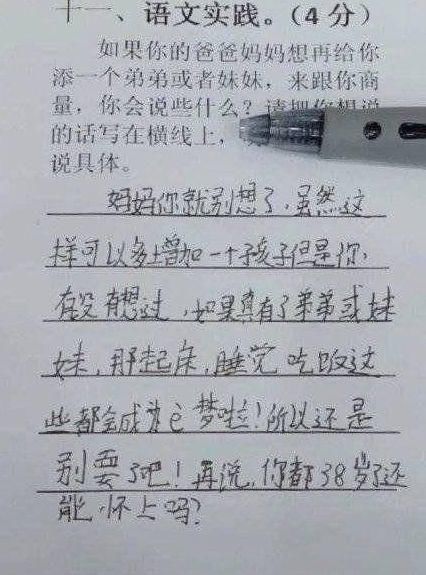 十一、语文实践。（4分）
如果你的爸爸妈妈想再给你
添一个弟弟或者妹妹，来跟你商
量，你会说些什么？请把你想说
的话写在横线上，
说具体。
妈妈你就别想了，虽然这
样可以多增加一个孩子但是你，
有没有想过，如果真有了弟弟或妹
妹，那起床，睡觉吃饭这
些都会成为噩梦啦！所以还是
别要了吧！再说，你都38岁了还
能怀上吗？